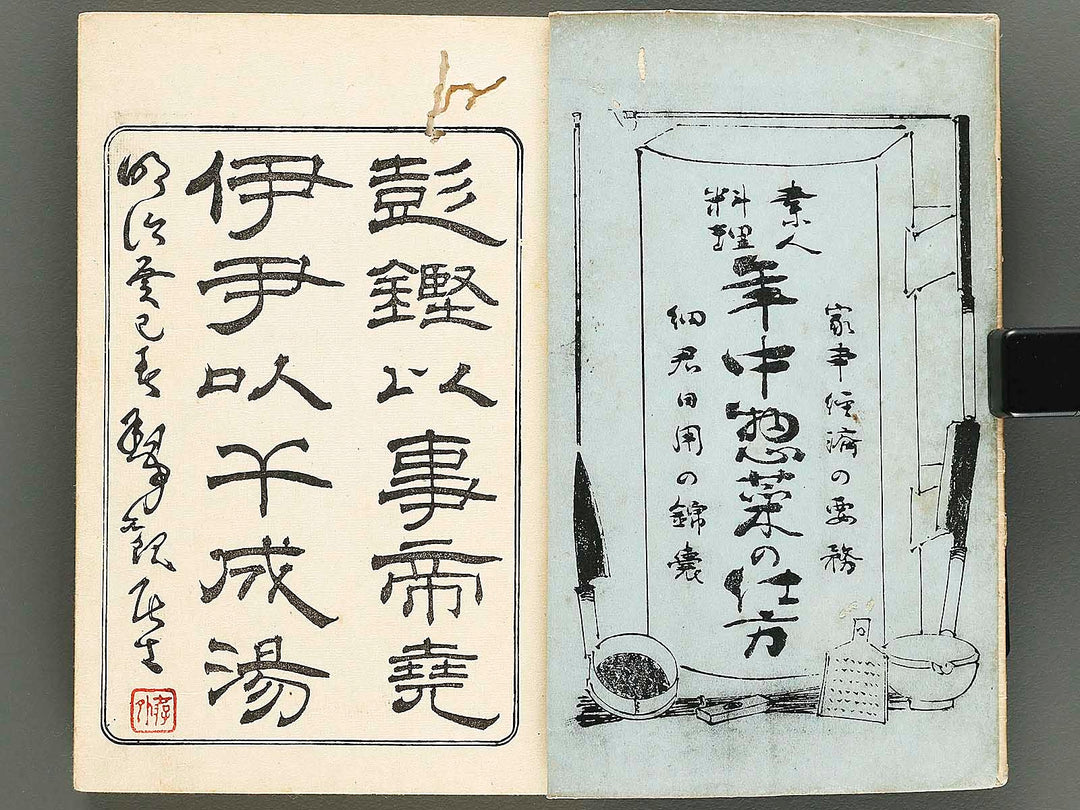 家事経済の要務
素人
料理
年中惣菜の仕方
細君日用の錦嚢
彭鏗以事帝堯
伊尹以干成湯
明治癸巳春 居士